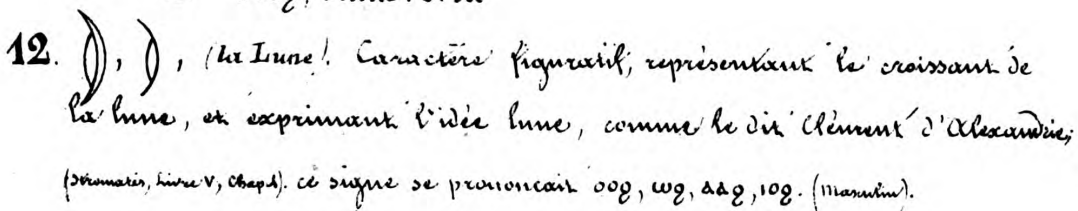 12. ☽, ☽, (la Lune). Caractère figuratif, représentant le croissant de
la lune, et exprimant l'idée lune, comme le dit Clément d'Alexandrie;
(Stromates, Livre V, Chap. 4). ce signe se prononcait ⲟⲟϩ, ⲱϩ, ⲁⲁϩ, ⲓⲟϩ. (Masculin).